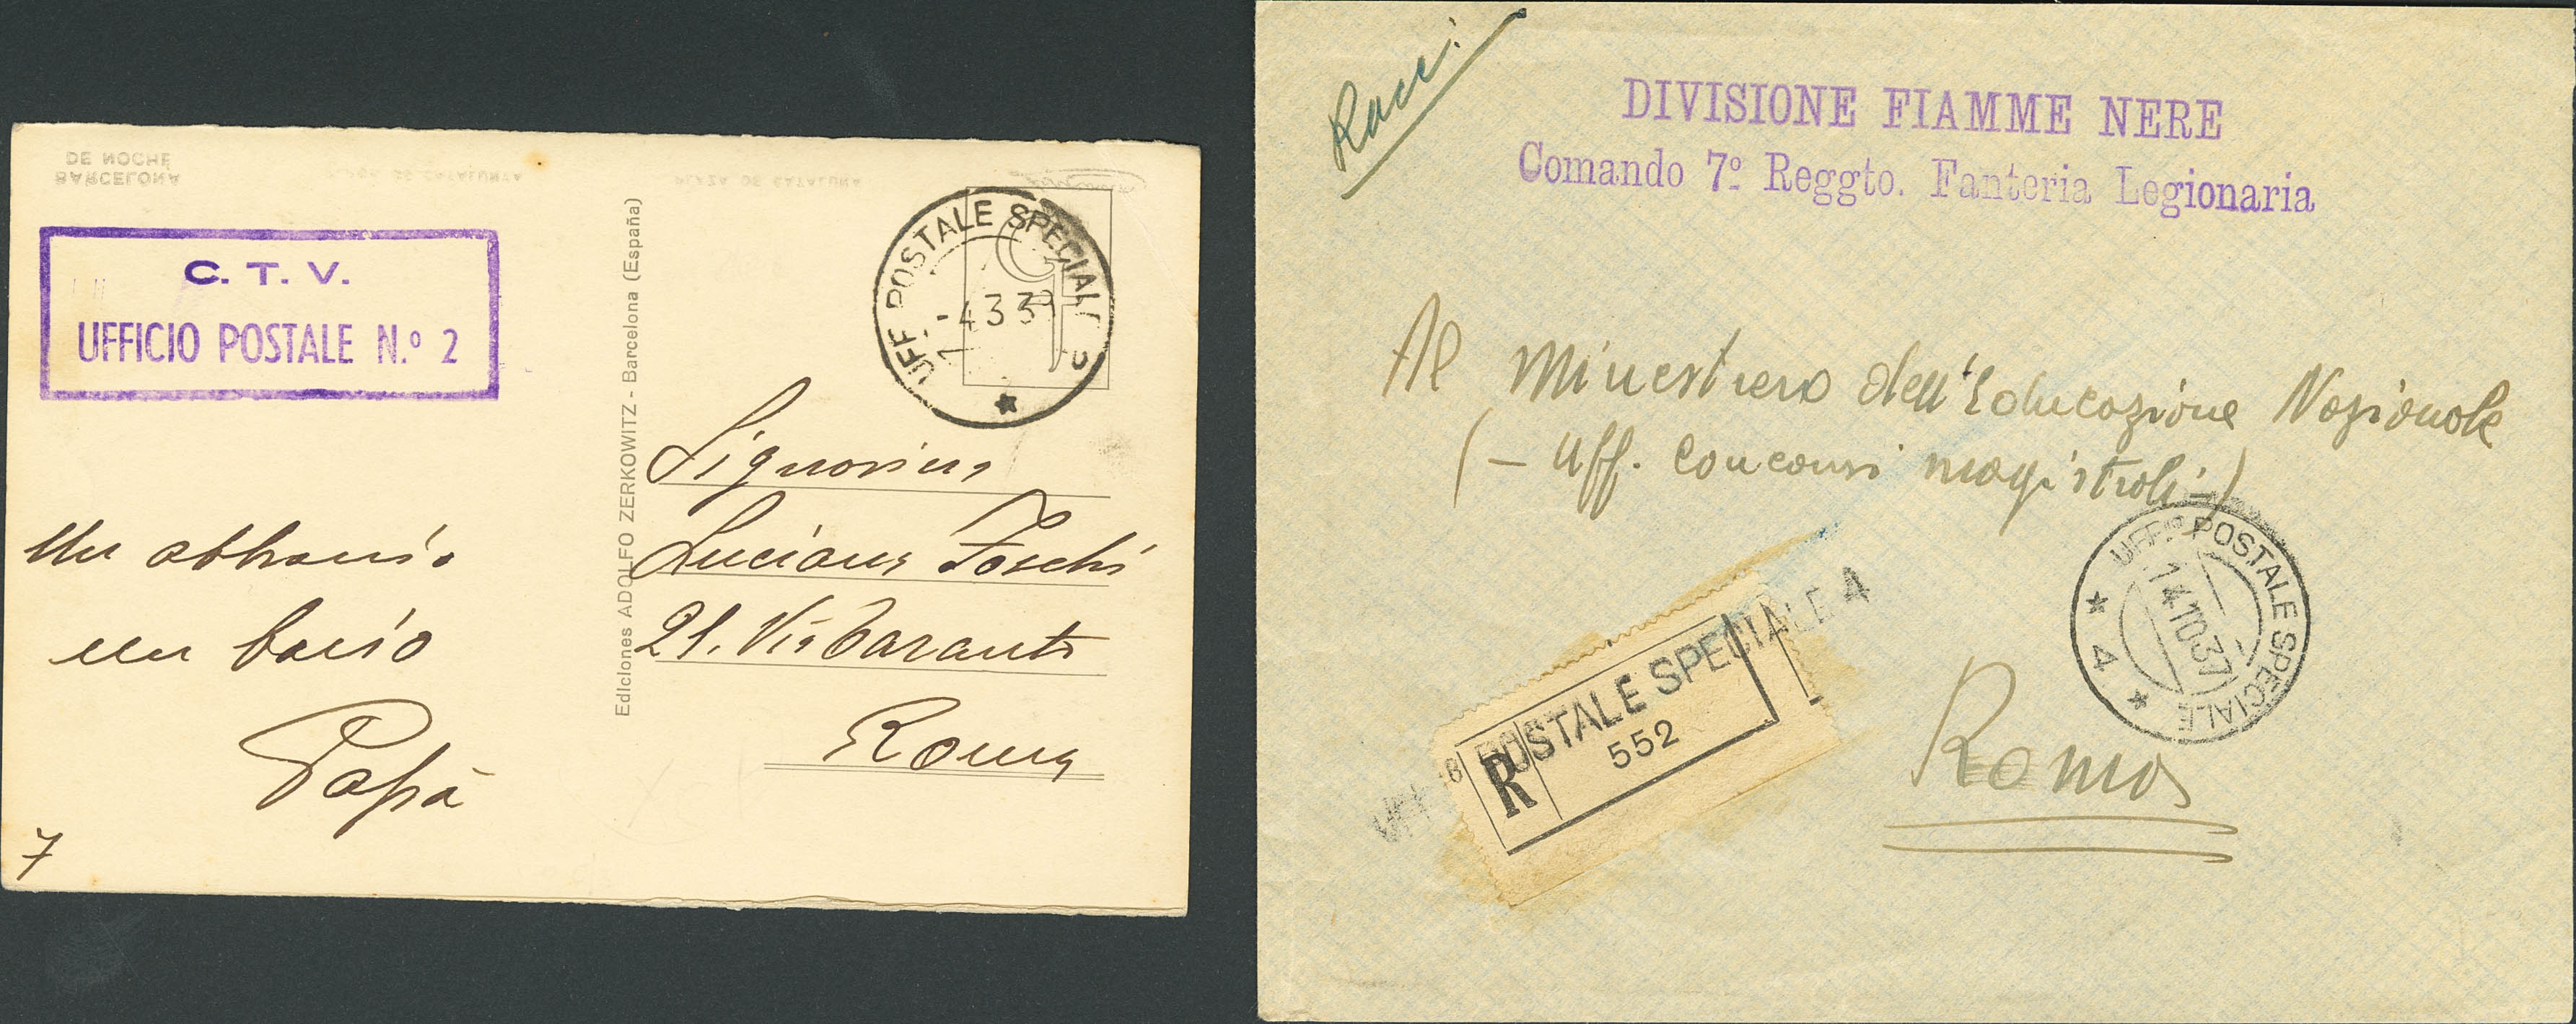 BARCELONA
DE NOCHE
PLAZA DE CATALUÑA
C. T. V.
UFFICIO POSTALE N.º 2
Un abbraccio
un bacio
Papà
7
Ediciones ADOLFO ZERKOWITZ - Barcelona (España)
UFF. POSTALE SPECIALE 2
-4 3 39
Signorina
Luciana Foschi
21. Via Taranto
Roma
Racc.
DIVISIONE FIAMME NERE
Comando 7º Reggto. Fanteria Legionaria
Al Ministero dell'Educazione Nazionale
(- Uff. Concorsi magistrali -)
UFF. POSTALE SPECIALE
14.10.37
4
R
POSTALE SPECIALE 4
552
Roma